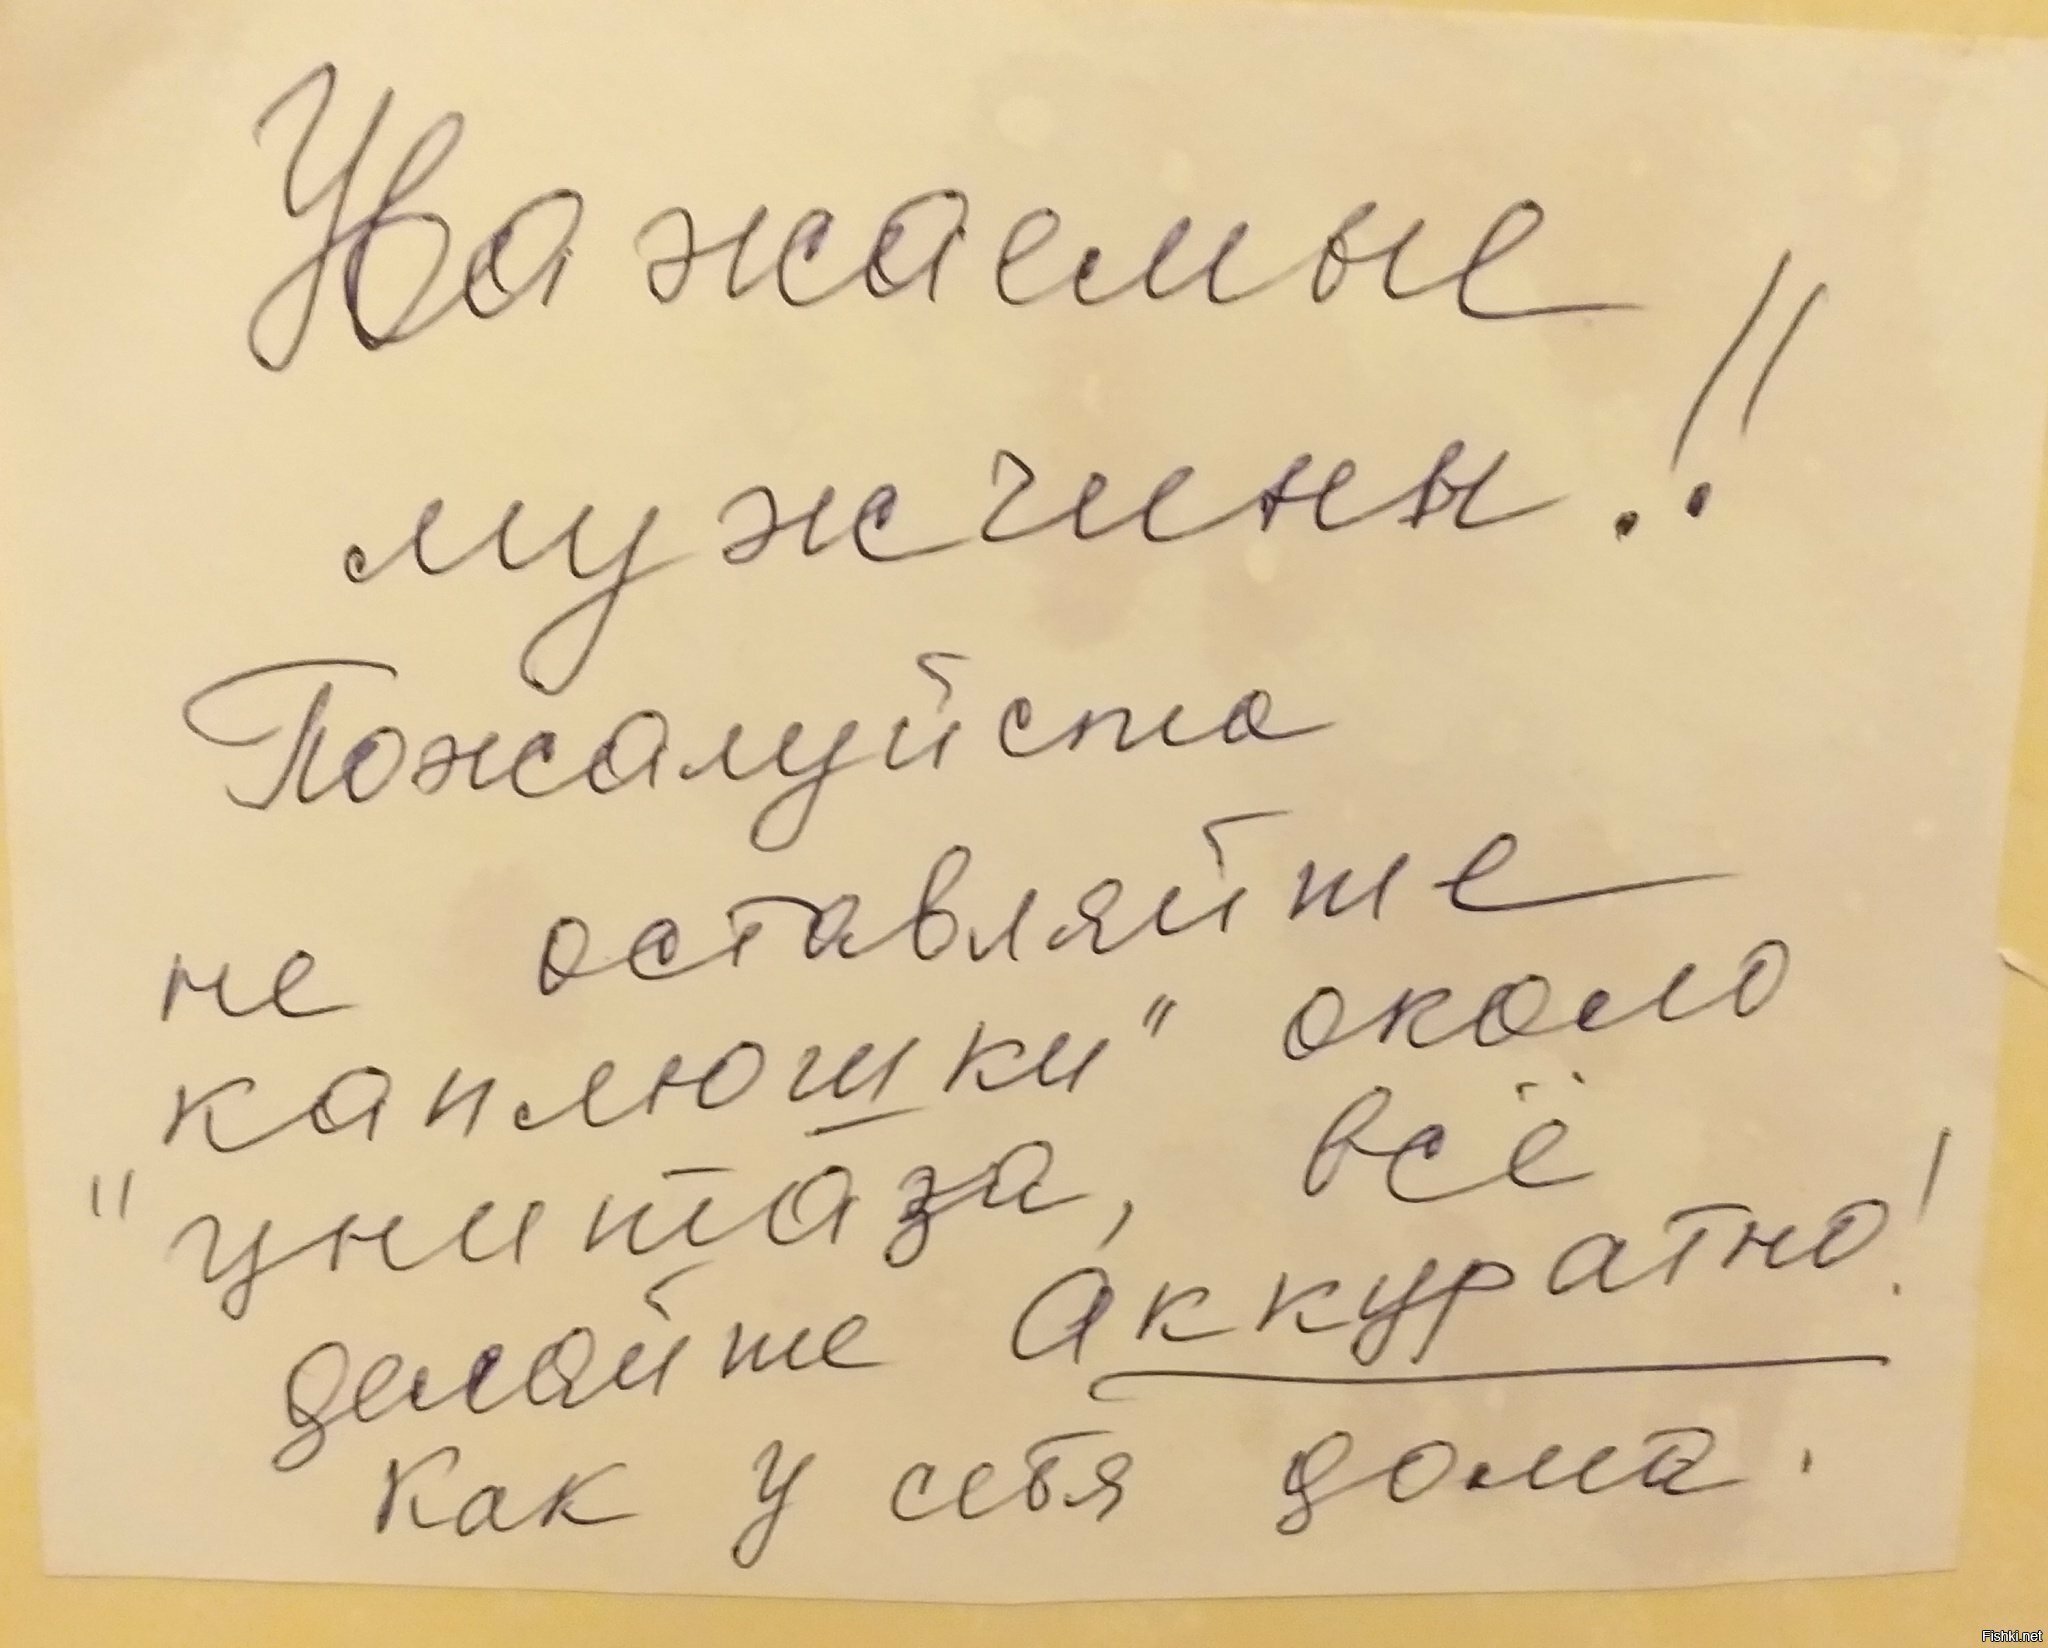 Уважаемые
мужчины!!
Пожалуйста
не оставляйте
каплюшки" около
"унитаза, всё
делайте Аккуратно!
Как у себя дома.
Fishki.net